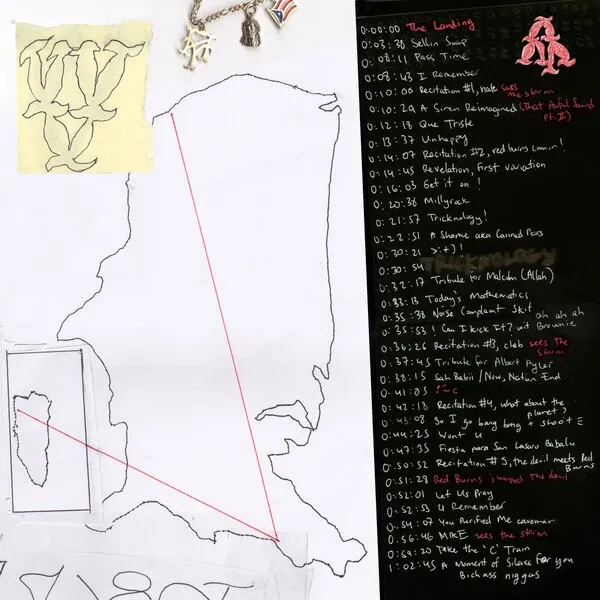 0:00:00 The Landing
0:03:38 Sellin Soap
0:08:11 Pass Time
0:08:43 I Remember
0:10:06 Recitation #1, nate sees the storm
0:10:29 A Siren Reimagined (That Awful Sound pt. II)
0:12:18 Que Triste
0:13:37 Unhappy
0:14:07 Recitation #2, red burns comin'!
0:14:45 Revelation, First variation
0:16:03 Get it on!
0:20:38 Millyrock
0:21:57 Tricknology!
0:22:51 A Shame aka Canned Peas
0:30:21 >:+)!
0:30:54 TRICKNOLOGY
0:32:17 Tribute for Malcolm (Allah)
0:33:13 Today's Mathematics
0:35:38 Noise Complaint Skit
0:35:53 ! Can I Kick It? wit ah ah ah Brownie
0:36:26 Recitation #3, cleb sees The Storm
0:37:45 Tribute For Albert Ayler
0:38:15 Sah Babii / Now, Nation End
0:41:05
0:42:18 Recitation #4, what about the planet?
0:43:08 So I go bang bang + shoot
0:44:25 Want U
0:47:35 Fiesta para San Lasaro Babalu
0:50:52 Recitation #5, the devil meets Red Burns
0:51:28 Red Burns jumped The devil
0:52:01 Let Us Pray
0:52:53 U Remember
0:54:07 You Purified Me caveman
0:56:46 MIKE sees the storm
0:59:20 Take the 'C' Train
1:02:45 A Moment of Silence For you Bichass niggas